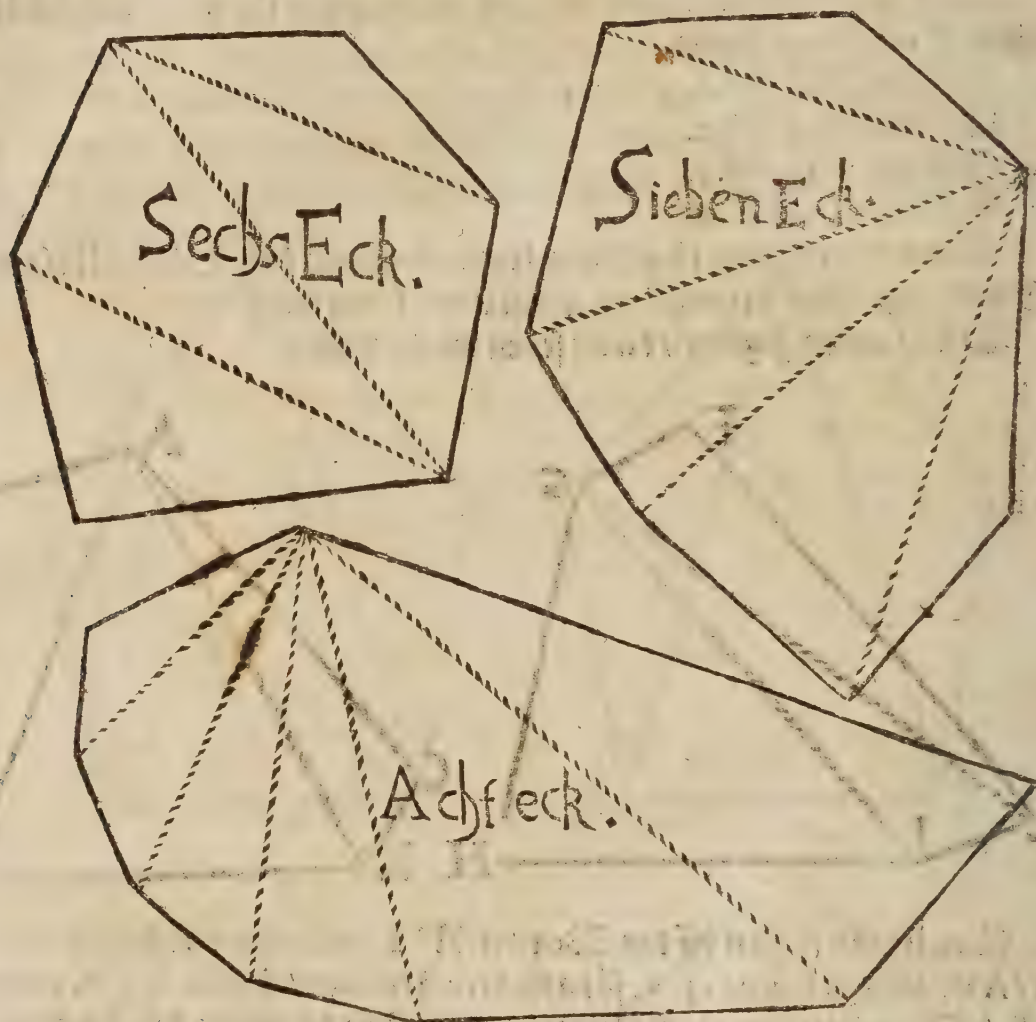 SechsEck.
SiebenEck.
Achteck.